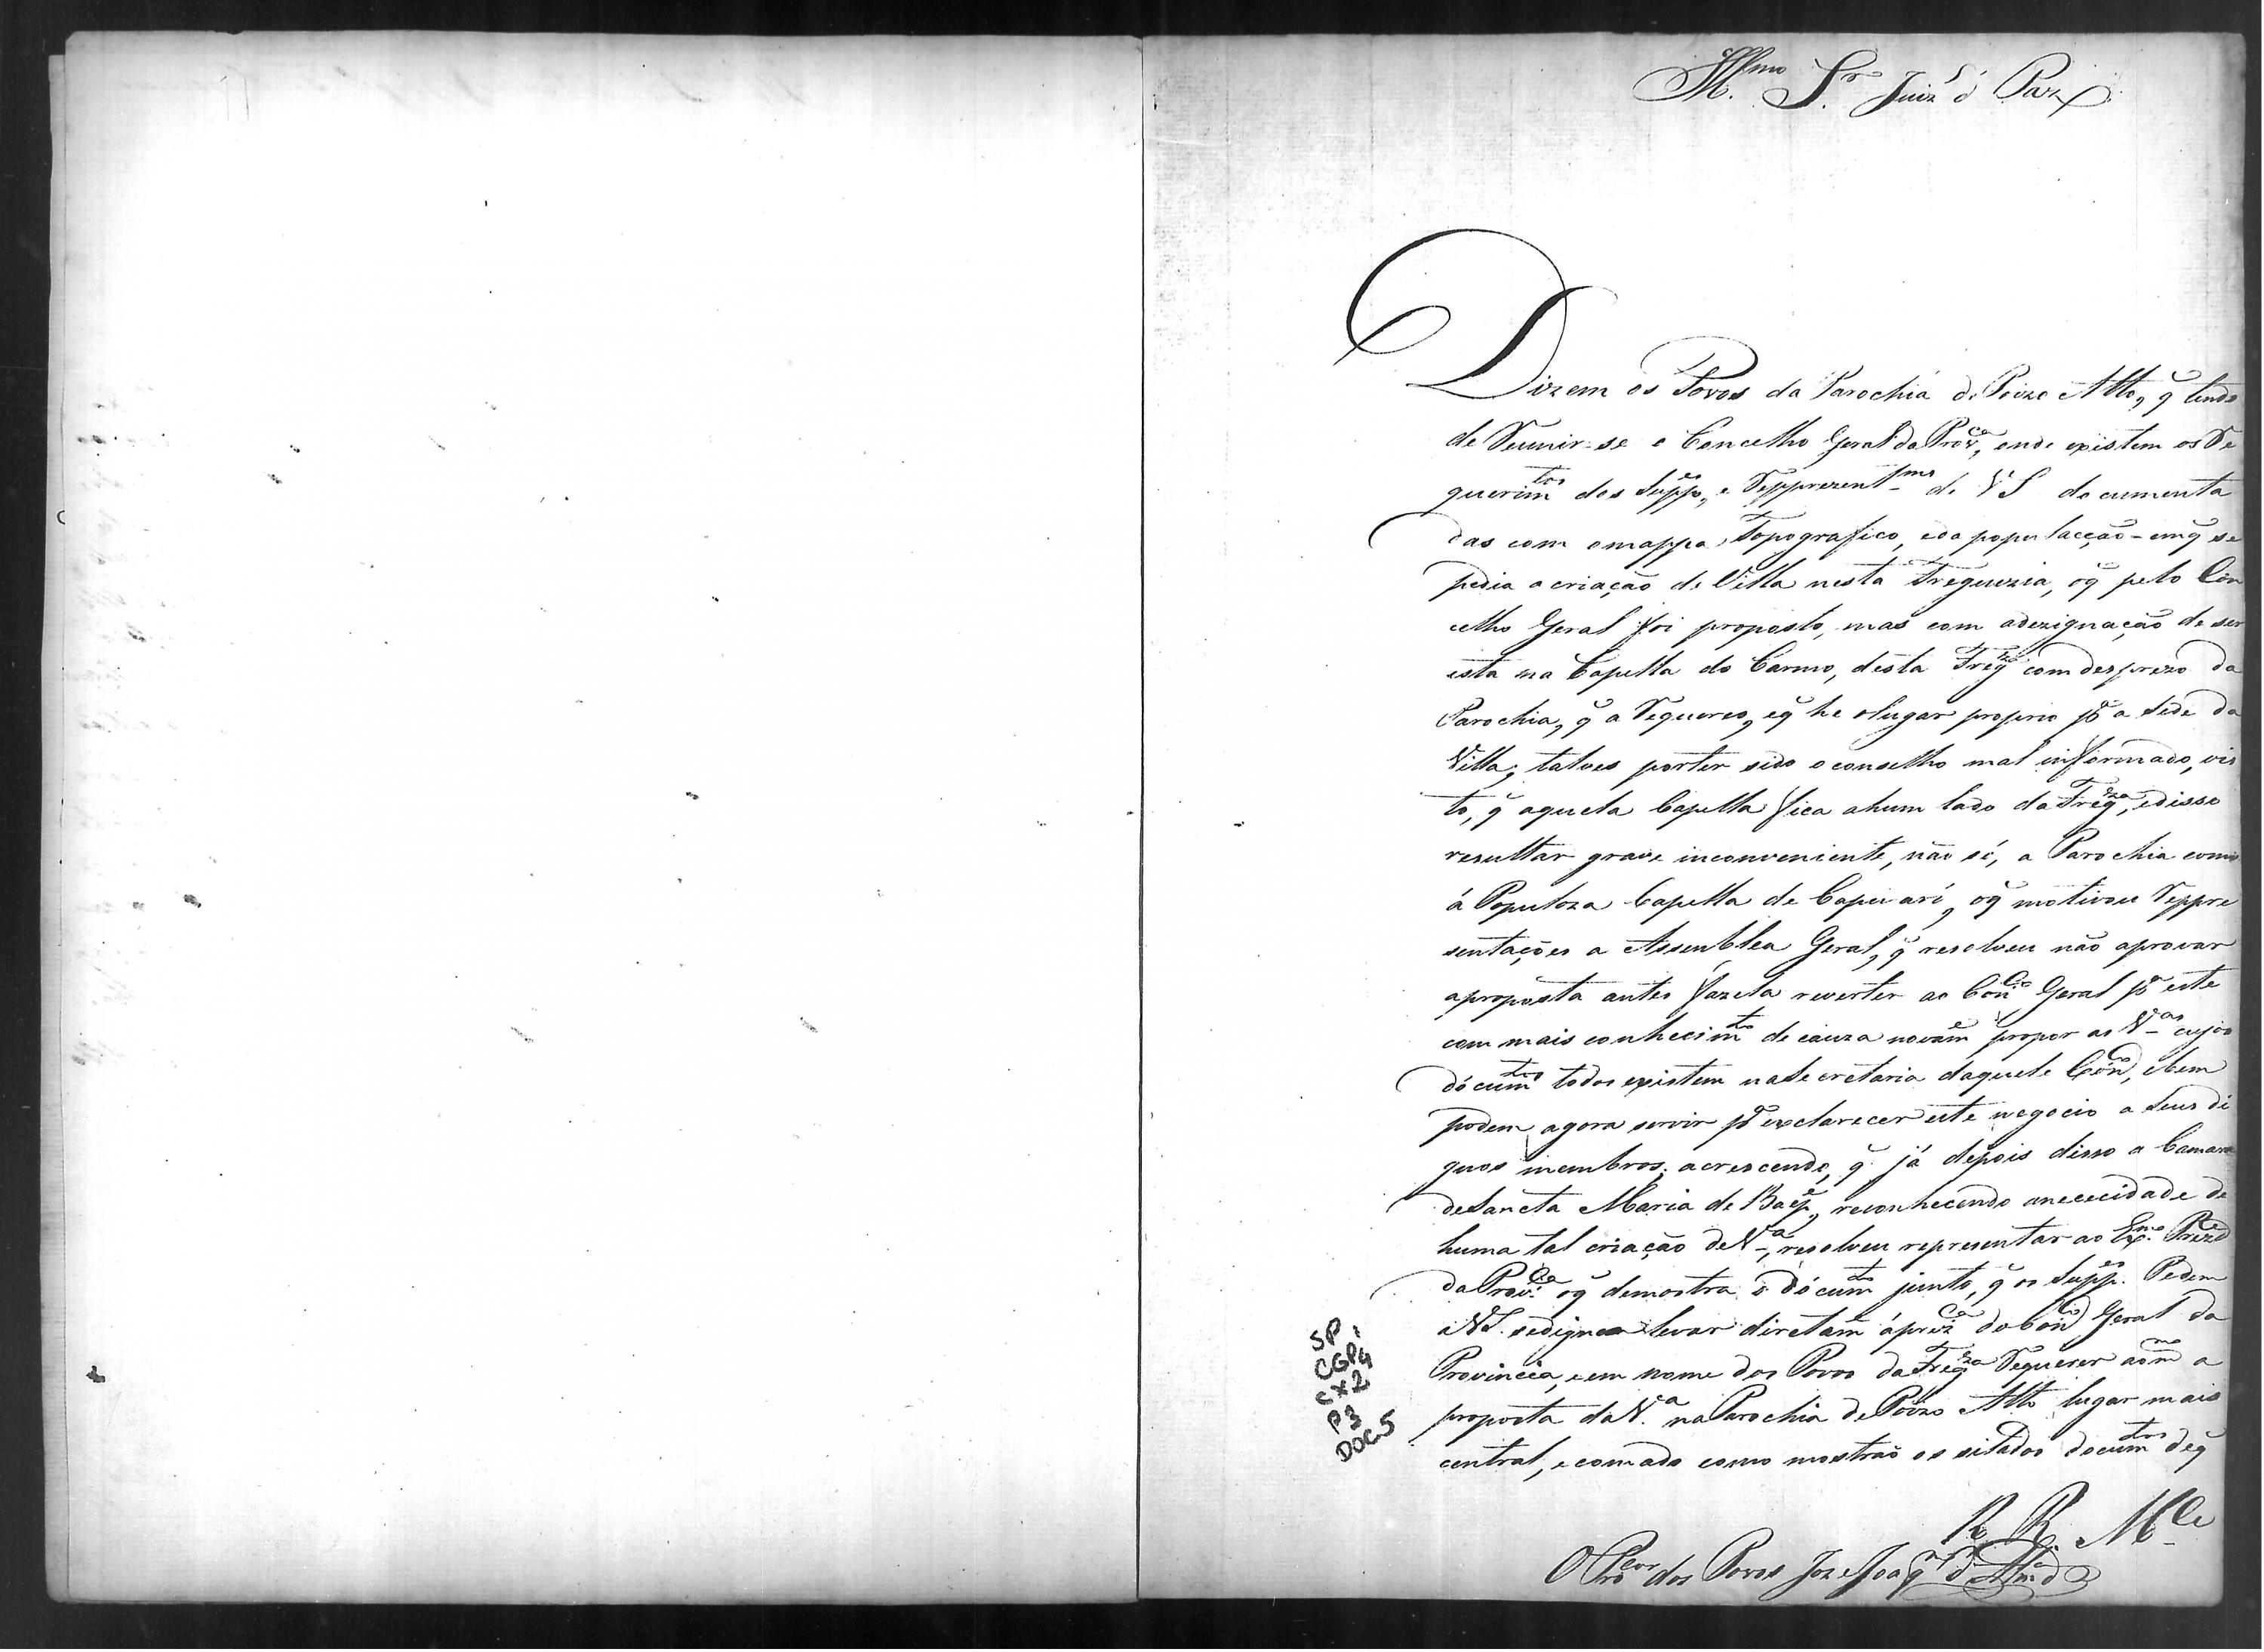 Illmo Sr. Juiz d' Paz
Dizem os Povos da Parochia de Poizo Alto, q̃ tendo
de Reunir-se o Concelho Geral da Provca, onde existem os Re
querimtos dos Suppes, e Repprezent de VS documenta
das com o mappa Topografico, e da populacção - em q̃ se
pedia a criação de Villa nesta Freguezia, o q̃ pelo Con
celho Geral foi proposto, mas com a dezignação de ser
esta na Capella do Carmo, desta Fregza com desprezo da
Parochia, q̃ a Requereo, e q̃ he o lugar proprio pa a Sede da
Villa; talves por ter sido o conselho mal informado, vis
to, q̃ aquela Capella fica a hum lado da Fregza, e disso
resultar grave inconveniente, não só, a Parochia como
á Populoza Capella de Capivari, o q̃ motivou Reppre
sentações a Assemblea Geral, q̃ resolveu não aprovar
a proposta antes fazela reverter ao Conco Geral pa este
com mais conhecimto de cauza novame propor as Vas cujos
dócumtos todos existem na Secretaria daquele Conco, e bem
podem agora servir pa exclarecer este negocio a Seus di
gnos membros; acrescendo, q̃ já depois disso a Camara
de Sancta Maria de Baepe, reconhecendo a nececidade de
huma tal criação de Va, resolveu reprezentar ao Exmo Prezde
da Provca o q̃ demostra o dócumto junto, q̃ os Suppes. Pedem
a VS. se digne levar diretame á prezca do Conco Geral da
Provincia, e em nome dos Povos da Fregza Requerer ao mmo a
proposta da Va na Parochia de Poizo Alto lugar mais
central, e comado como mostrão os sitados documtos de q̃
R. R. Mce
O Procor dos Povos Joze Joaqm d' Almda
SP
CGP1
CX2
P3
DOC.5